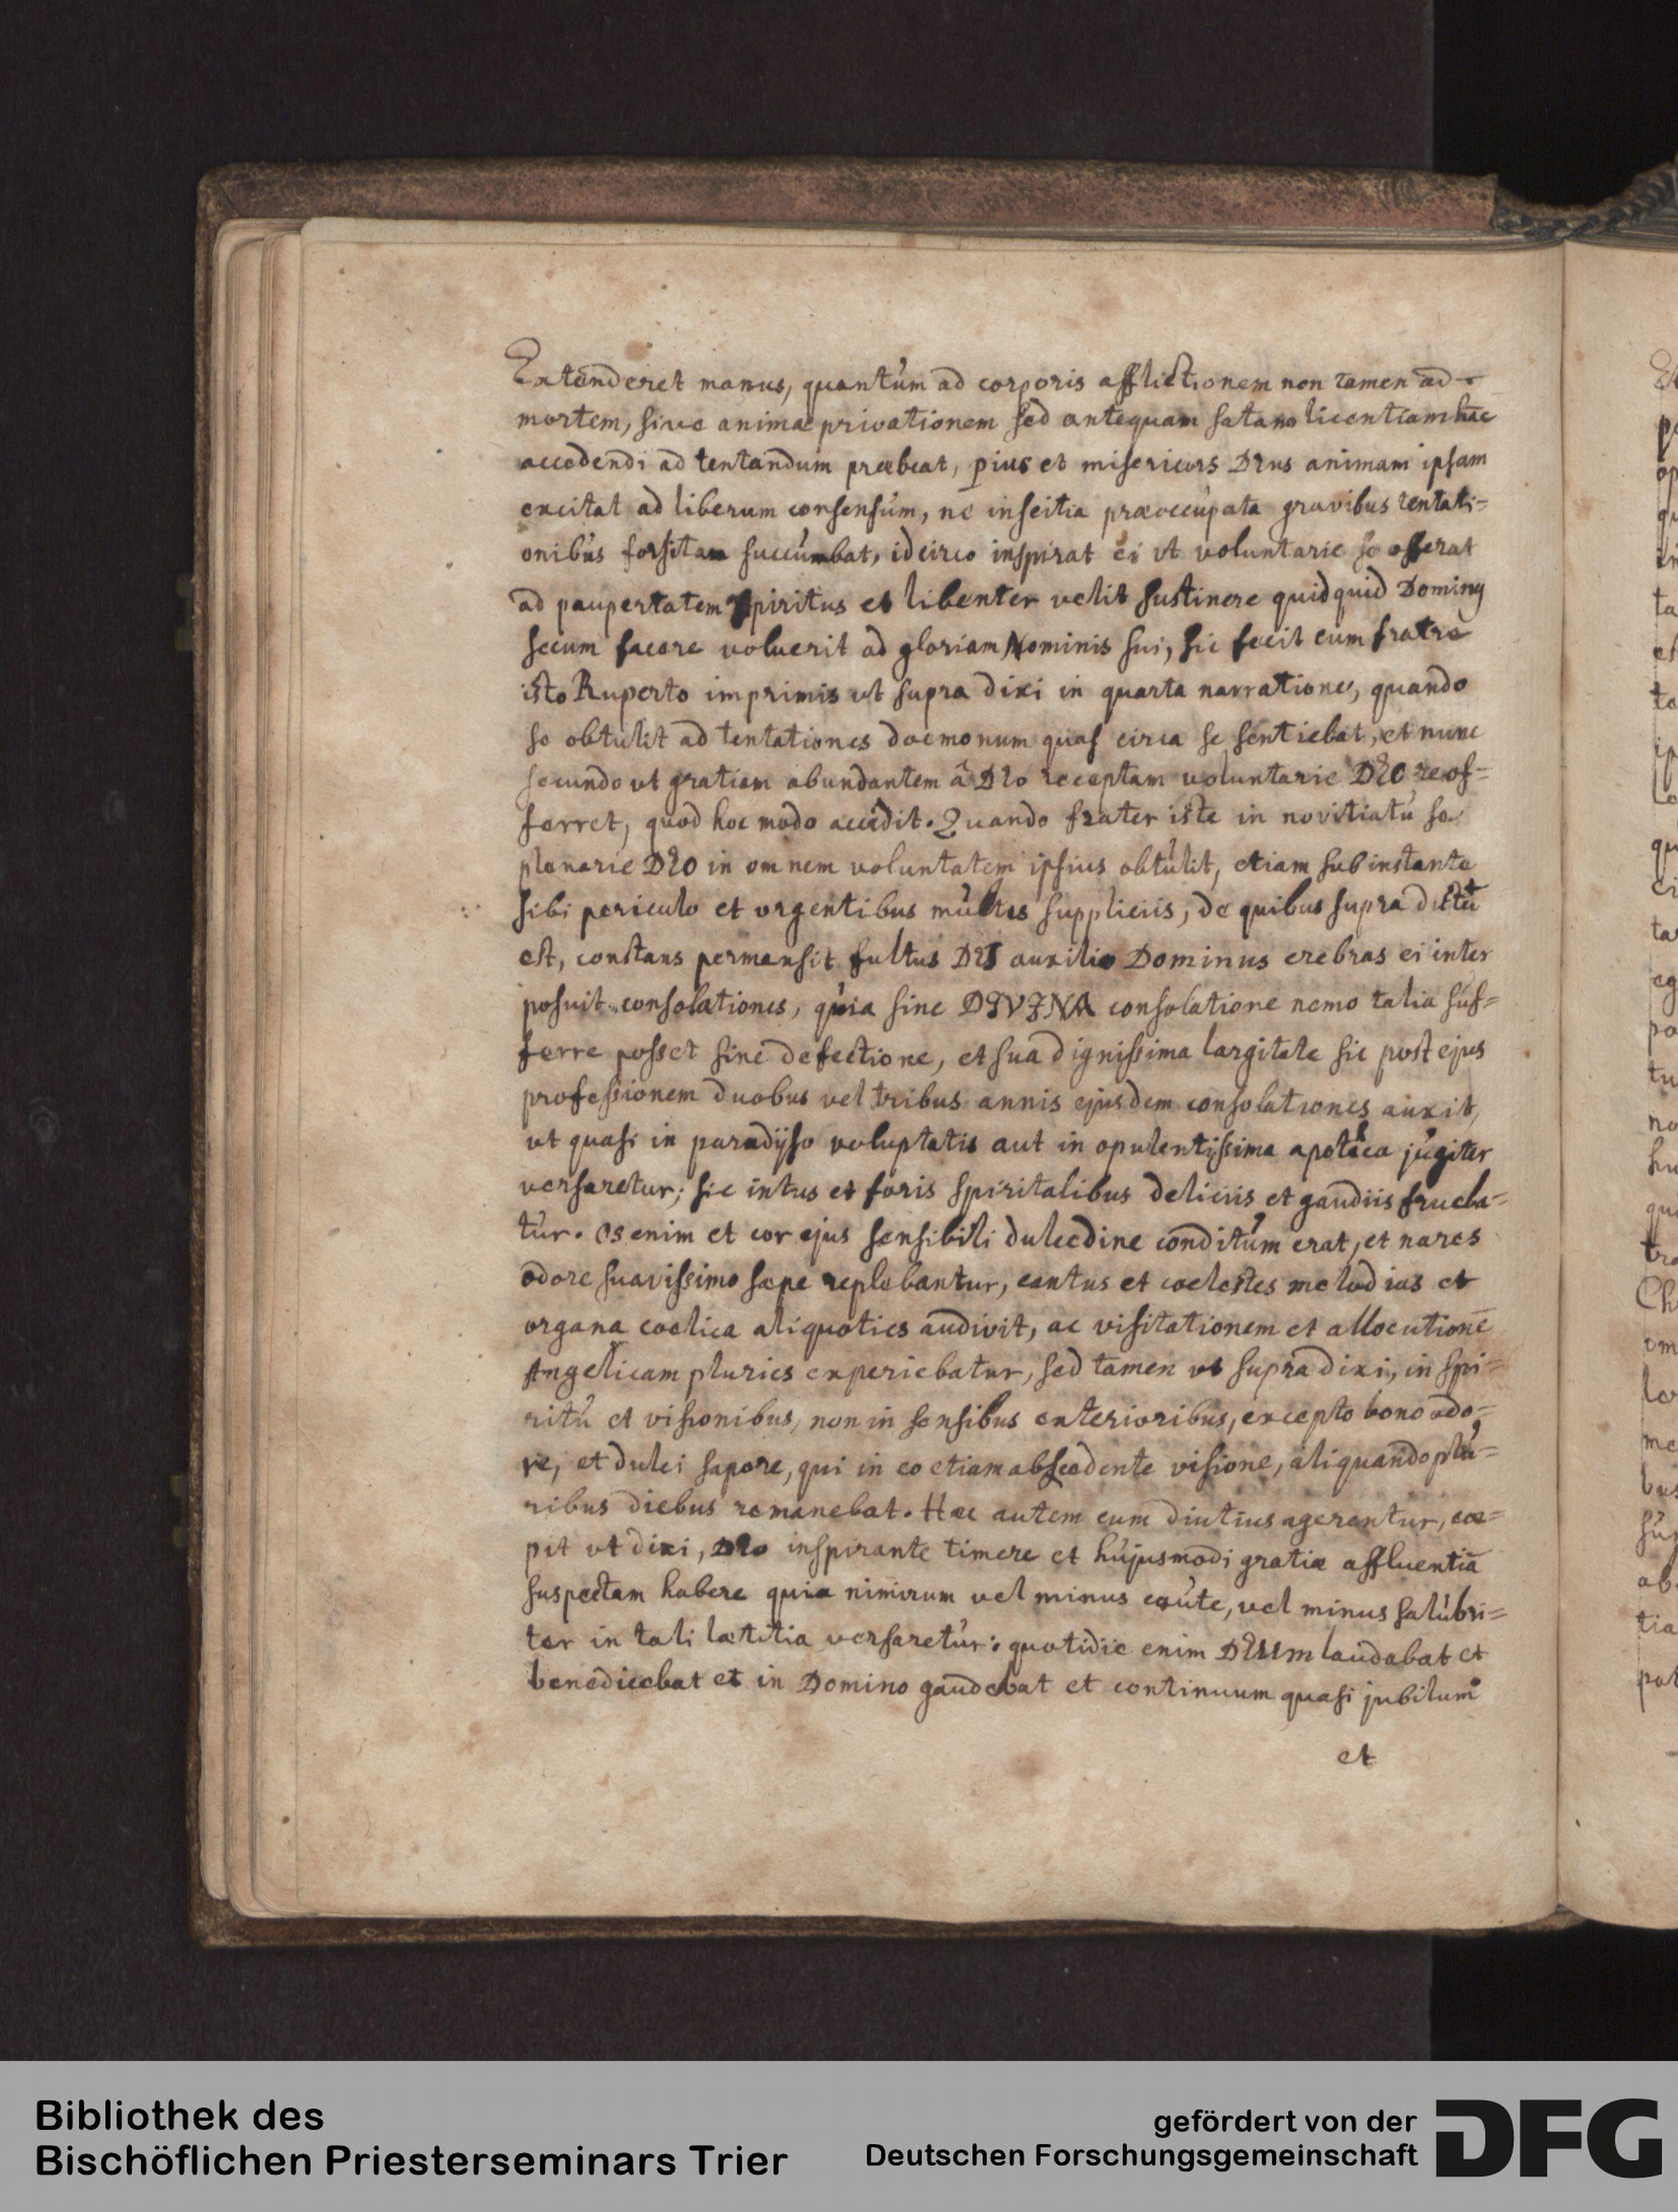 Extenderet manus, quantum ad corporis afflictionem non tamen ad
mortem, sive animæ privationem sed antequam satano licentiam hac
accedendi ad tentandum præbeat, pius et misericors DEus animam ipsam
excitat ad liberum consensum, ne inscitia præoccupata gravibus tentati=
onibus forsitan succumbat, idcirco inspirat ei ut voluntarie se offerat
ad paupertatem Spiritus et libenter velit sustinere quidquid Dominus
secum facere voluerit ad gloriam Nominis sui, sic fecit cum fratre
isto Ruperto imprimis ut supra dixi in quarta narratione, quando
se obtulit ad tentationes dæmonum quas circa se sentiebat, et nunc
secundo ut gratiam abundantem â DEo receptam voluntarie DEO reof=
ferret, quod hoc modo accidit. Quando frater iste in novitiatu se
plenarie DEO in omnem voluntatem ipsius obtulit, etiam sub instante
sibi periculo et urgentibus multis suppliciis, de quibus supra dictũ
est, constans permansit fultus DEI auxilio Dominus crebras ei inter
posuit consolationes, quia sine DIVINA consolatione nemo talia suf=
ferre posset sine defectione, et sua dignissima largitate sic post ejus
professionem duobus vel tribus annis ejusdem consolationes auxit,
ut quasi in paradyso voluptatis aut in opulentissima apoteca jugiter
versaretur; sic intus et foris spiritalibus deliciis et gaudiis frueba=
tur. Os enim et cor ejus sensibili dulcedine conditum erat, et nares
odore suavissimo sæpe replebantur, cantus et coelestes melodias et
organa coelica aliquoties audivit, ac visitationem et allocutionẽ
Angelicam pluries experiebatur, sed tamen ut supra dixi, in spi=
ritu et visionibus, non in sensibus exterioribus, excepto bono odo=
re, et dulci sapore, qui in eo etiam abscedente visione, aliquando plu=
ribus diebus remanebat. Hæc autem cum diutius agerentur, coe=
pit ut dixi, DEo inspirante timere et hujusmodi gratiæ affluentiã
suspectam habere quia nimirum vel minus caute, vel minus salubri=
ter in tali lætitia versaretur: quotidie enim DEUM laudabat et
benedicebat et in Domino gaudebat et continuum quasi jubilum
et
Bibliothek des
Bischöflichen Priesterseminars Trier
gefördert von der
Deutschen Forschungsgemeinschaft
DFG